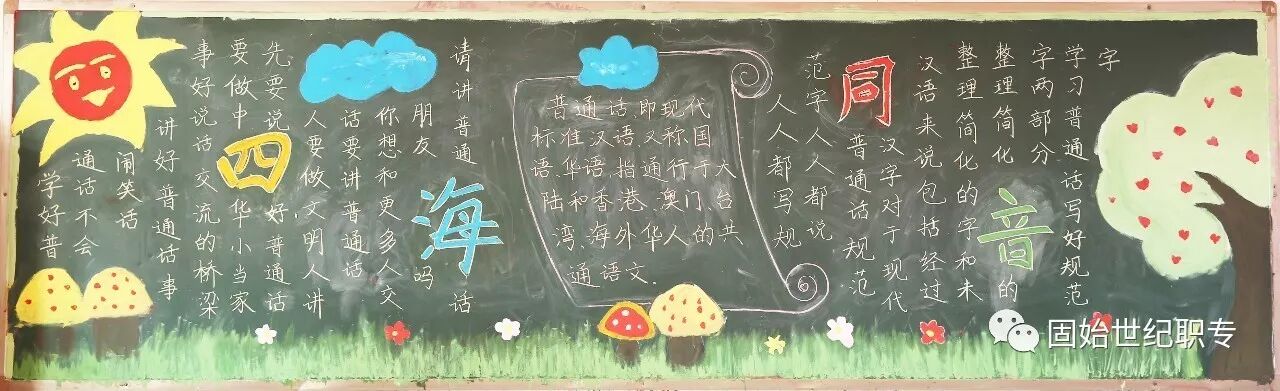 四海同音
学好普
通话不会
闹笑话
讲好普通话事
事好说话交流的桥梁
要做中华小当家
先要说好普通话
人要做文明人讲
话要讲普通话
你想和更多人交
朋友吗
请讲普通话
普通话,即现代
标准汉语,又称国
语、华语,指通行于大
陆和香港、澳门、台
湾、海外华人的共
通语文.
人人都写规
范字人人都说
普通话规范
汉字对于现代
汉语来说包括经过
整理简化的字和未
整理简化的
字两部分
学习普通话写好规范
字
固始世纪职专